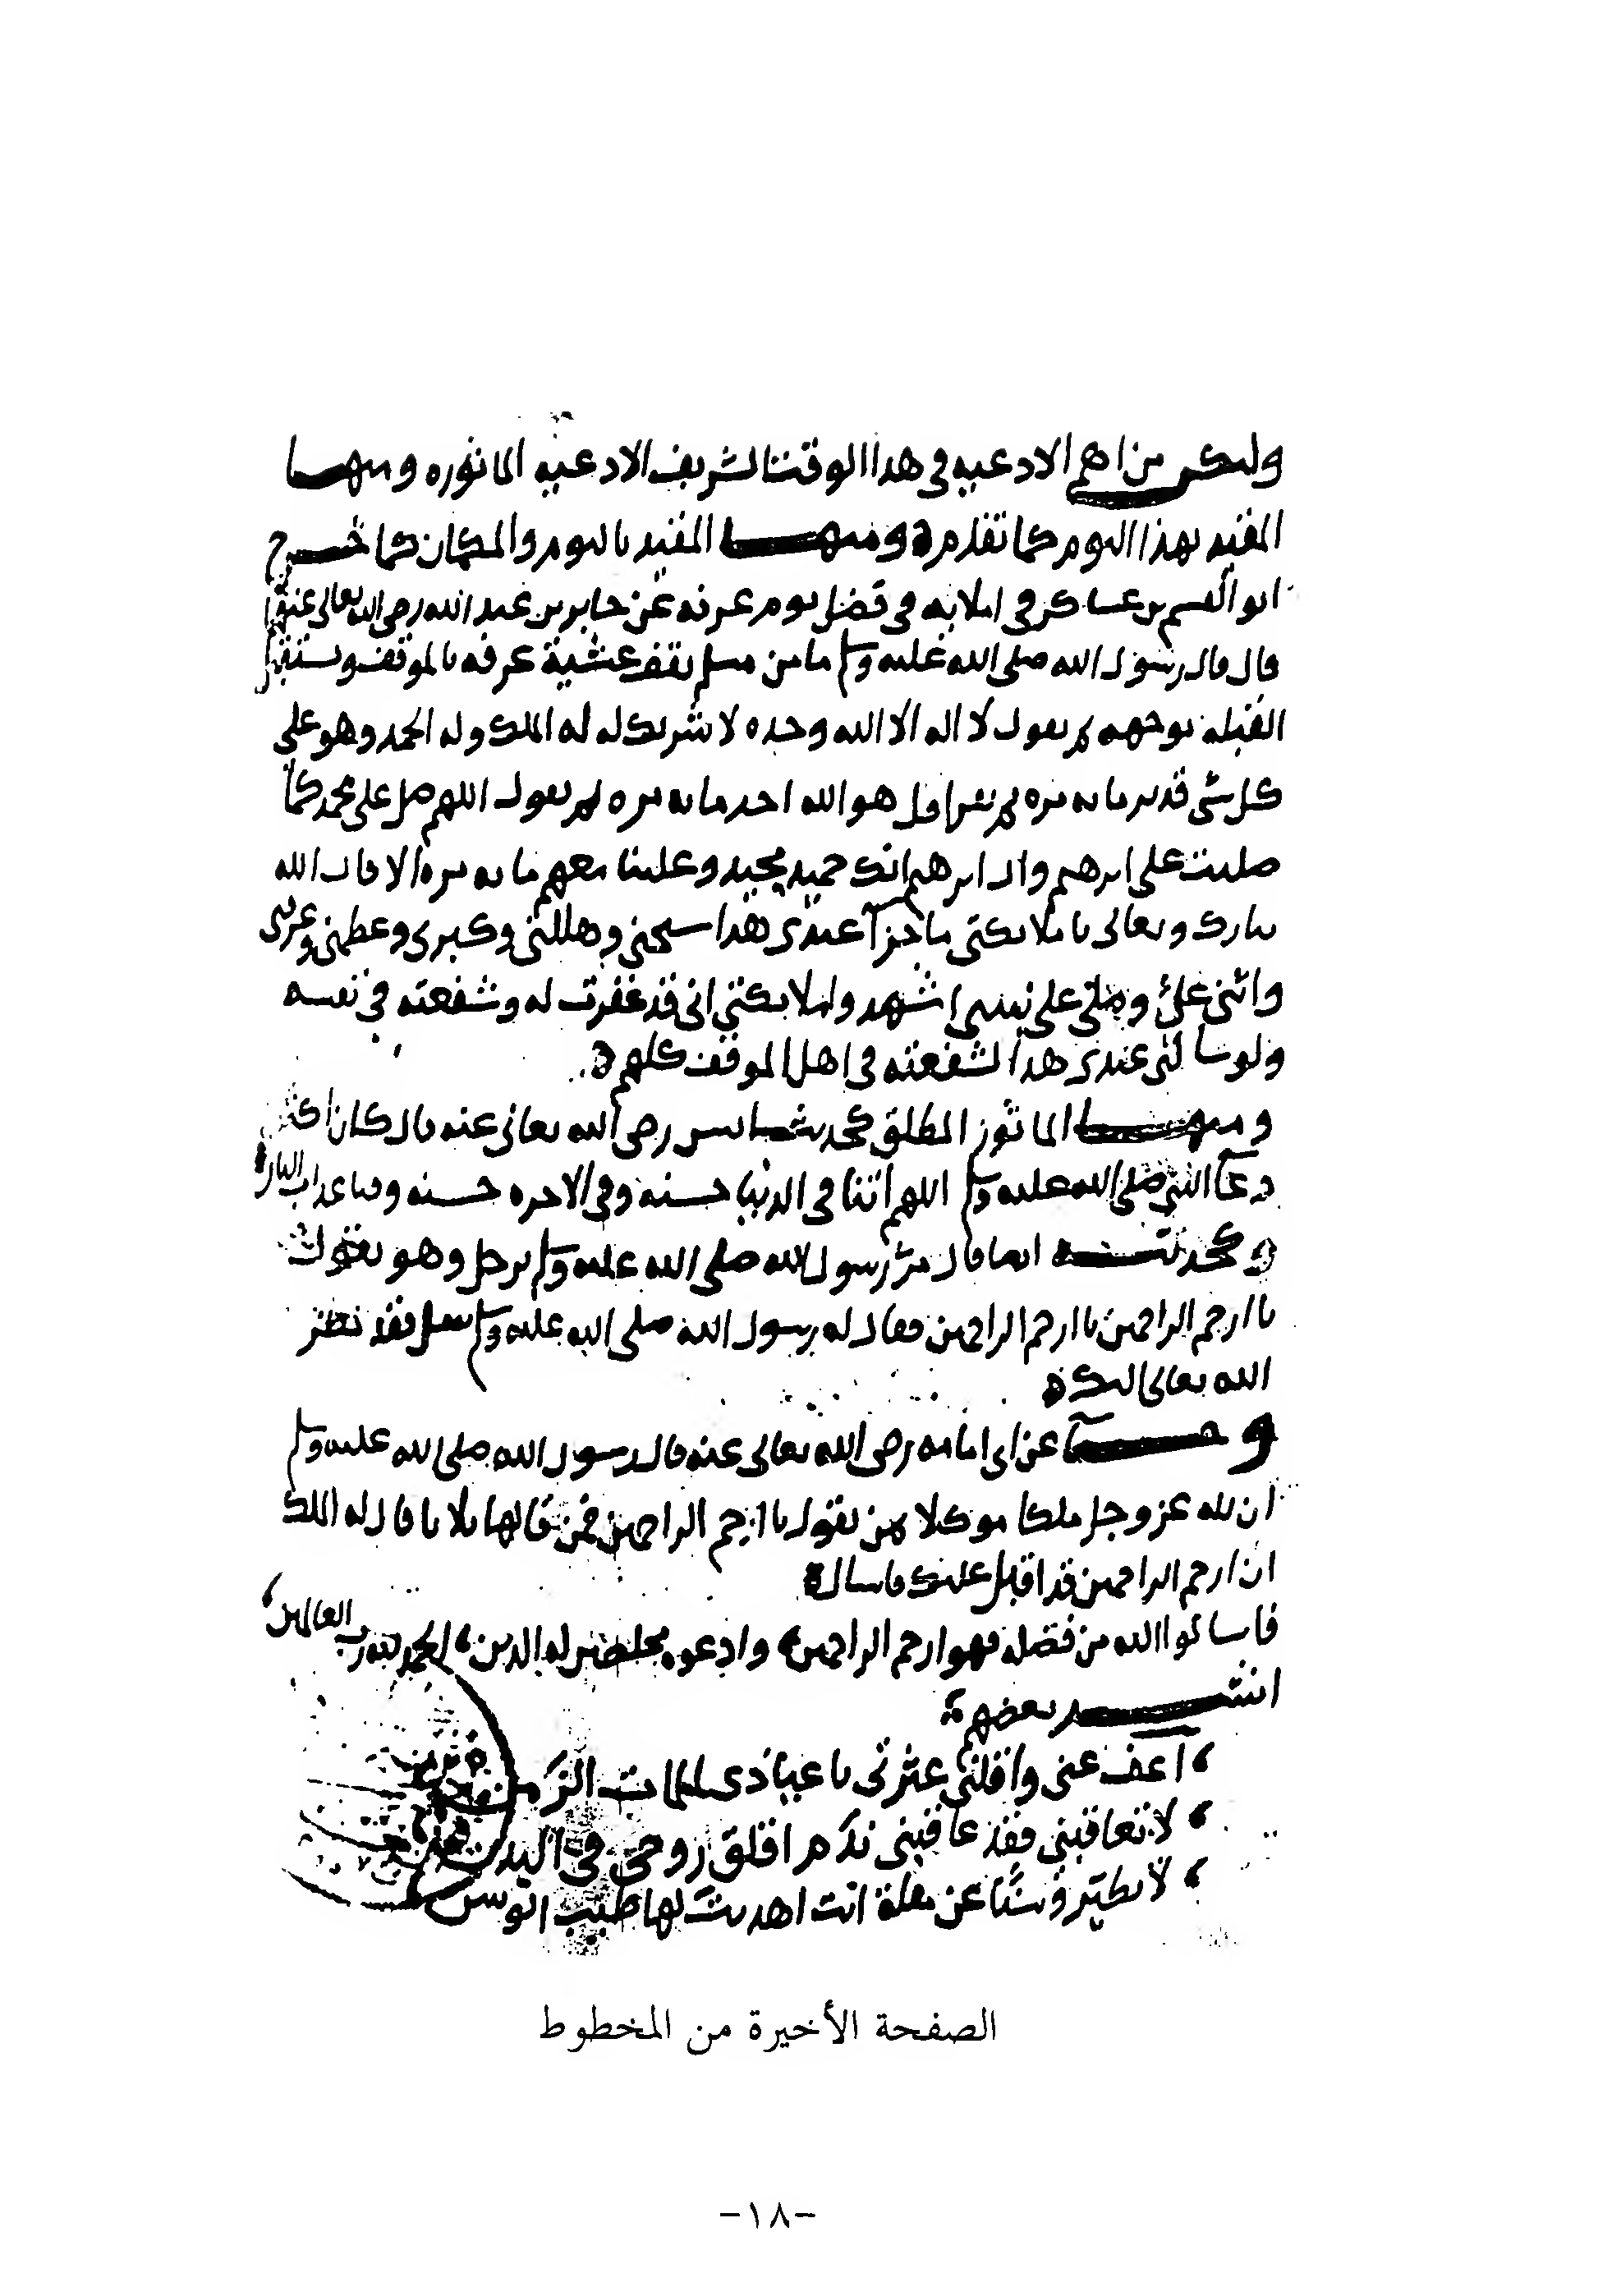 وليكن من اهم الادعيه في هذا الوقت الشريف الادعيه الماثوره ومنها
المقيد بهذا اليوم كما تقدم ومنها المقيد باليوم والمكان كما خرج
ابو القسم بن عساكر في املايه في فضل يوم عرفه عن جابر بن عبد الله رضي الله تعالى عنهما
قال قال رسول الله صلى الله عليه وسلم ما من مسلم يقف عشية عرفه بالموقف ويستقبل
القبله بوجهه ثم يقول لا اله الا الله وحده لا شريك له له الملك وله الحمد وهو على
كل شي قدير مايه مره ثم يقرا قل هو الله احد مايه مره ثم يقول اللهم صل على محمد كما
صليت على ابرهيم وال ابرهيم انك حميد مجيد وعلينا معهم مايه مره الا قال الله
تبارك وتعالى يا ملايكتي ما جزآ عبدي هذا سبحني وهللني وكبرني وعظمني وعرفني
واثنى علي وصلى على نبيي اشهدوا ملايكتي اني قد غفرت له وشفعته في نفسه
ولو سالني عبدي هذا لشفعته في اهل الموقف كلهم
ومنها الماثور المطلق كحديث انس رضي الله تعالى عنه قال كان اكثر
دعآ النبي صلى الله عليه وسلم اللهم آتنا في الدنيا حسنه وفي الاخره حسنه وقنا عذاب النار
وكحديثه ايضا قال مر رسول الله صلى الله عليه وسلم برجل وهو يقول
يا ارحم الراحمين يا ارحم الراحمين فقال له رسول الله صلى الله عليه وسلم سل فقد نظر
الله تعالى اليك
وجآ عن ابي امامه رضي الله تعالى عنه قال رسول الله صلى الله عليه وسلم
ان لله عز وجل ملكا موكلا بمن يقول يا ارحم الراحمين فمن قالها ثلاثا قال له الملك
ان ارحم الراحمين قد اقبل عليك فاسال
فاسالوا الله من فضله فهو ارحم الراحمين وادعوه مخلصين له الدين الحمد لله رب العالمين
انشد بعضهم
اعف عني واقلني عثرتي يا عياذي لملمات الزمن
لا تعاقبني فقد عاقبني ندم اقلق روحي في البدن
لا تطير وسنا عن مقلة انت اهديت لها طيب الوسن
الصفحة الأخيرة من المخطوط
-١٨-